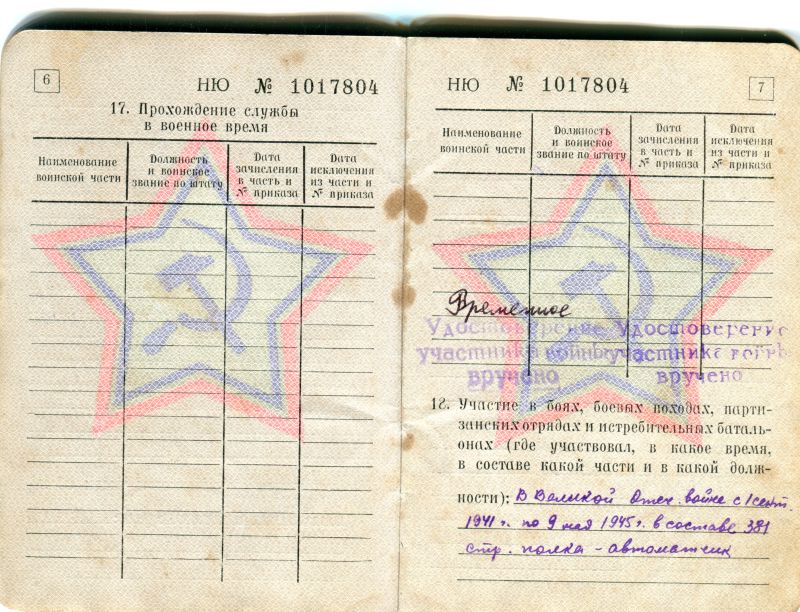 6
НЮ № 1017804
17. Прохождение службы
в военное время
Наименование воинской части
Должность и воинское звание по штату
Дата зачисления в часть и № приказа
Дата исключения из части и № приказа
НЮ № 1017804
7
Наименование воинской части
Должность и воинское звание по штату
Дата зачисления в часть и № приказа
Дата исключения из части и № приказа
Временное
Удостоверение
участника войны
вручено
Удостоверение
участника войны
вручено
18. Участие в боях, боевых походах, парти-
занских отрядах и истребительных баталь-
онах (где участвовал, в какое время,
в составе какой части и в какой долж-
ности): В Великой Отеч. войне с 1 сент.
1941 г. по 9 мая 1945 г. в составе 381
стр. полка - автоматчик